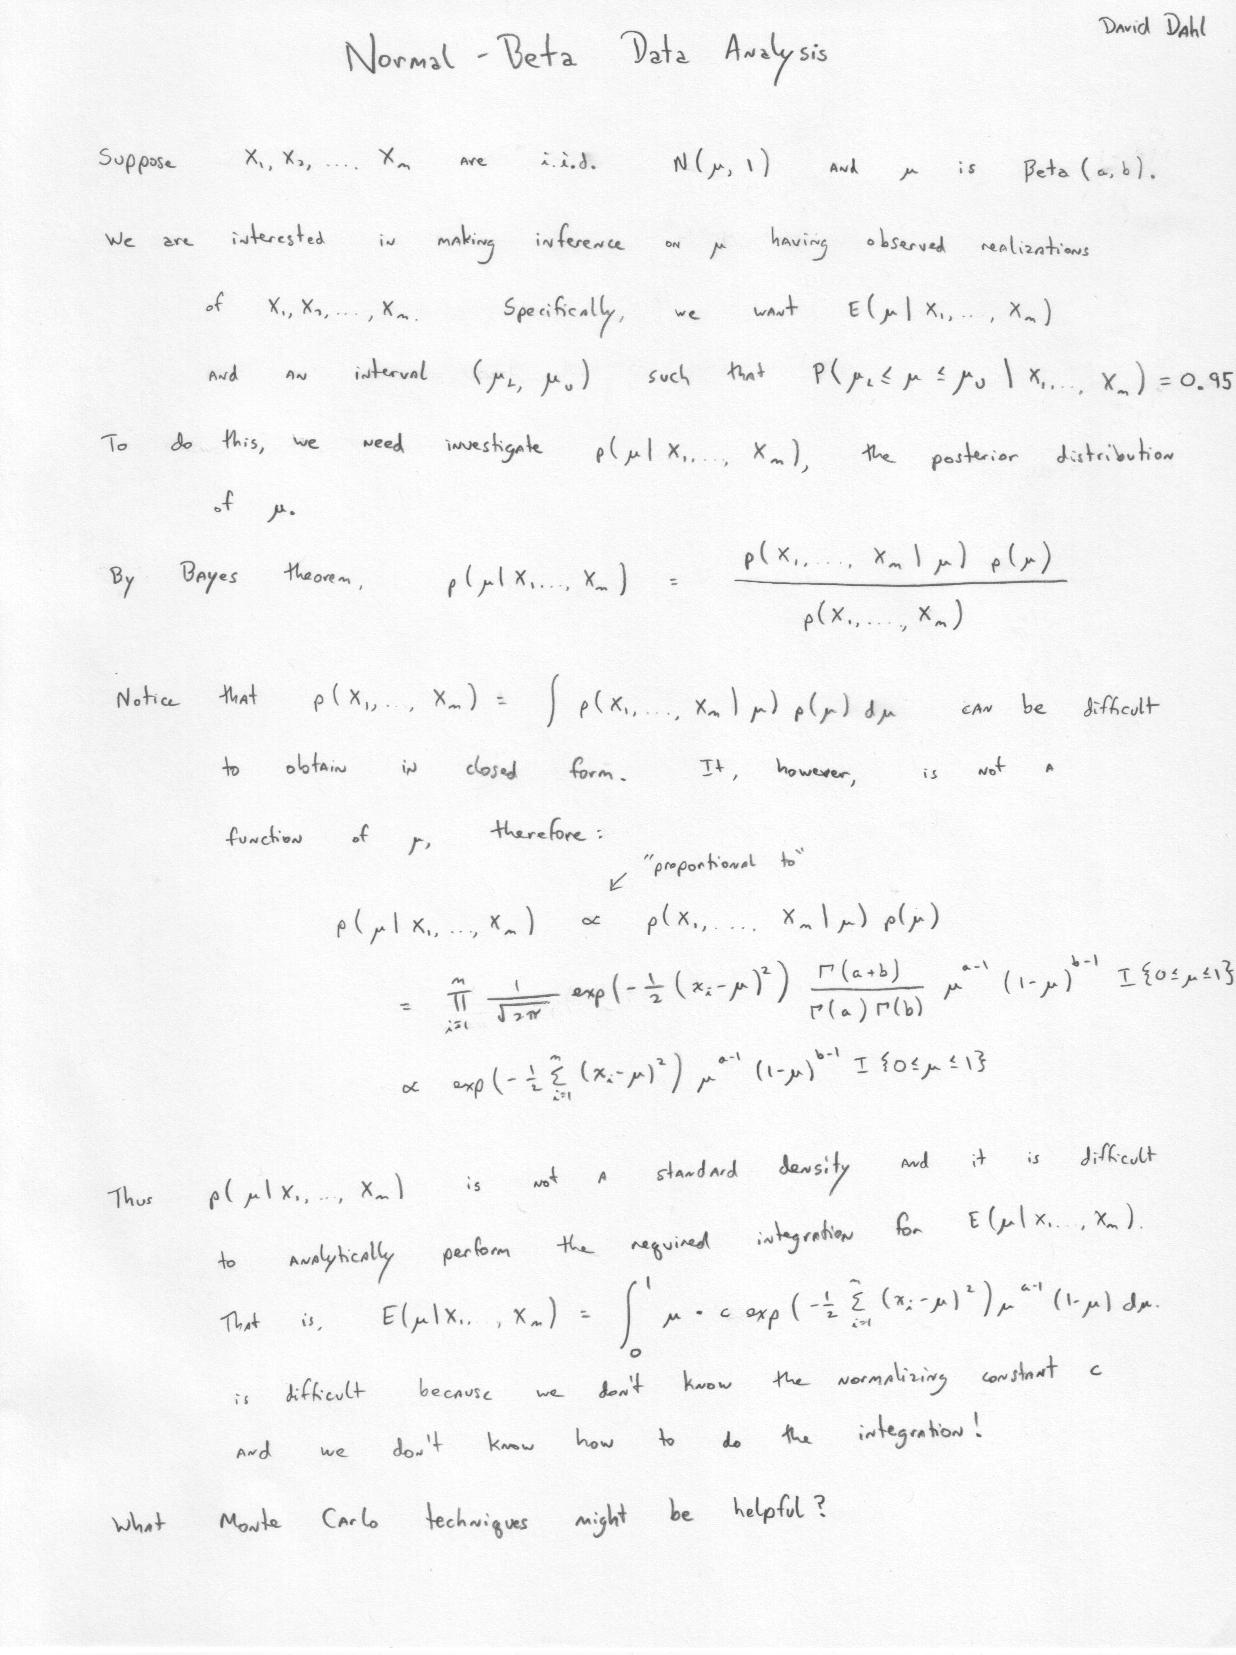 David Dahl
Normal - Beta Data Analysis
Suppose X₁, X₂, .... Xₘ are i.i.d. N(μ, 1) and μ is Beta(a, b).
We are interested in making inference on μ having observed realizations
of X₁, X₂, ..., Xₘ. Specifically, we want E(μ | X₁, ..., Xₘ)
and an interval (μ_L, μ_U) such that P(μ_L ≤ μ ≤ μ_U | X₁, ..., Xₘ) = 0.95
To do this, we need investigate p(μ | X₁, ..., Xₘ), the posterior distribution
of μ.
By Bayes theorem, p(μ | X₁, ..., Xₘ) = p(X₁, ...., Xₘ | μ) p(μ) / p(X₁, ...., Xₘ)
Notice that p(X₁, ..., Xₘ) = ∫ p(X₁, ..., Xₘ | μ) p(μ) dμ can be difficult
to obtain in closed form. It, however, is not a
function of μ, therefore:
"proportional to"
↙
p(μ | X₁, ..., Xₘ) ∝ p(X₁, .... Xₘ | μ) p(μ)
= ∏_{i=1}^{m} 1/√(2π) exp(-½ (xᵢ-μ)²) Γ(a+b) / Γ(a) Γ(b) μ^{a-1} (1-μ)^{b-1} I{0≤μ≤1}
∝ exp(-½ Σ_{i=1}^{m} (xᵢ-μ)²) μ^{a-1} (1-μ)^{b-1} I{0≤μ≤1}
Thus p(μ | X₁, ..., Xₘ) is not a standard density and it is difficult
to analytically perform the required integration for E(μ | X₁, ..., Xₘ).
That is, E(μ | X₁, .. , Xₘ) = ∫₀¹ μ · c exp(-½ Σ_{i=1}^{m} (xᵢ-μ)²) μ^{a-1} (1-μ) dμ.
is difficult because we don't know the normalizing constant c
and we don't know how to do the integration!
What Monte Carlo techniques might be helpful?